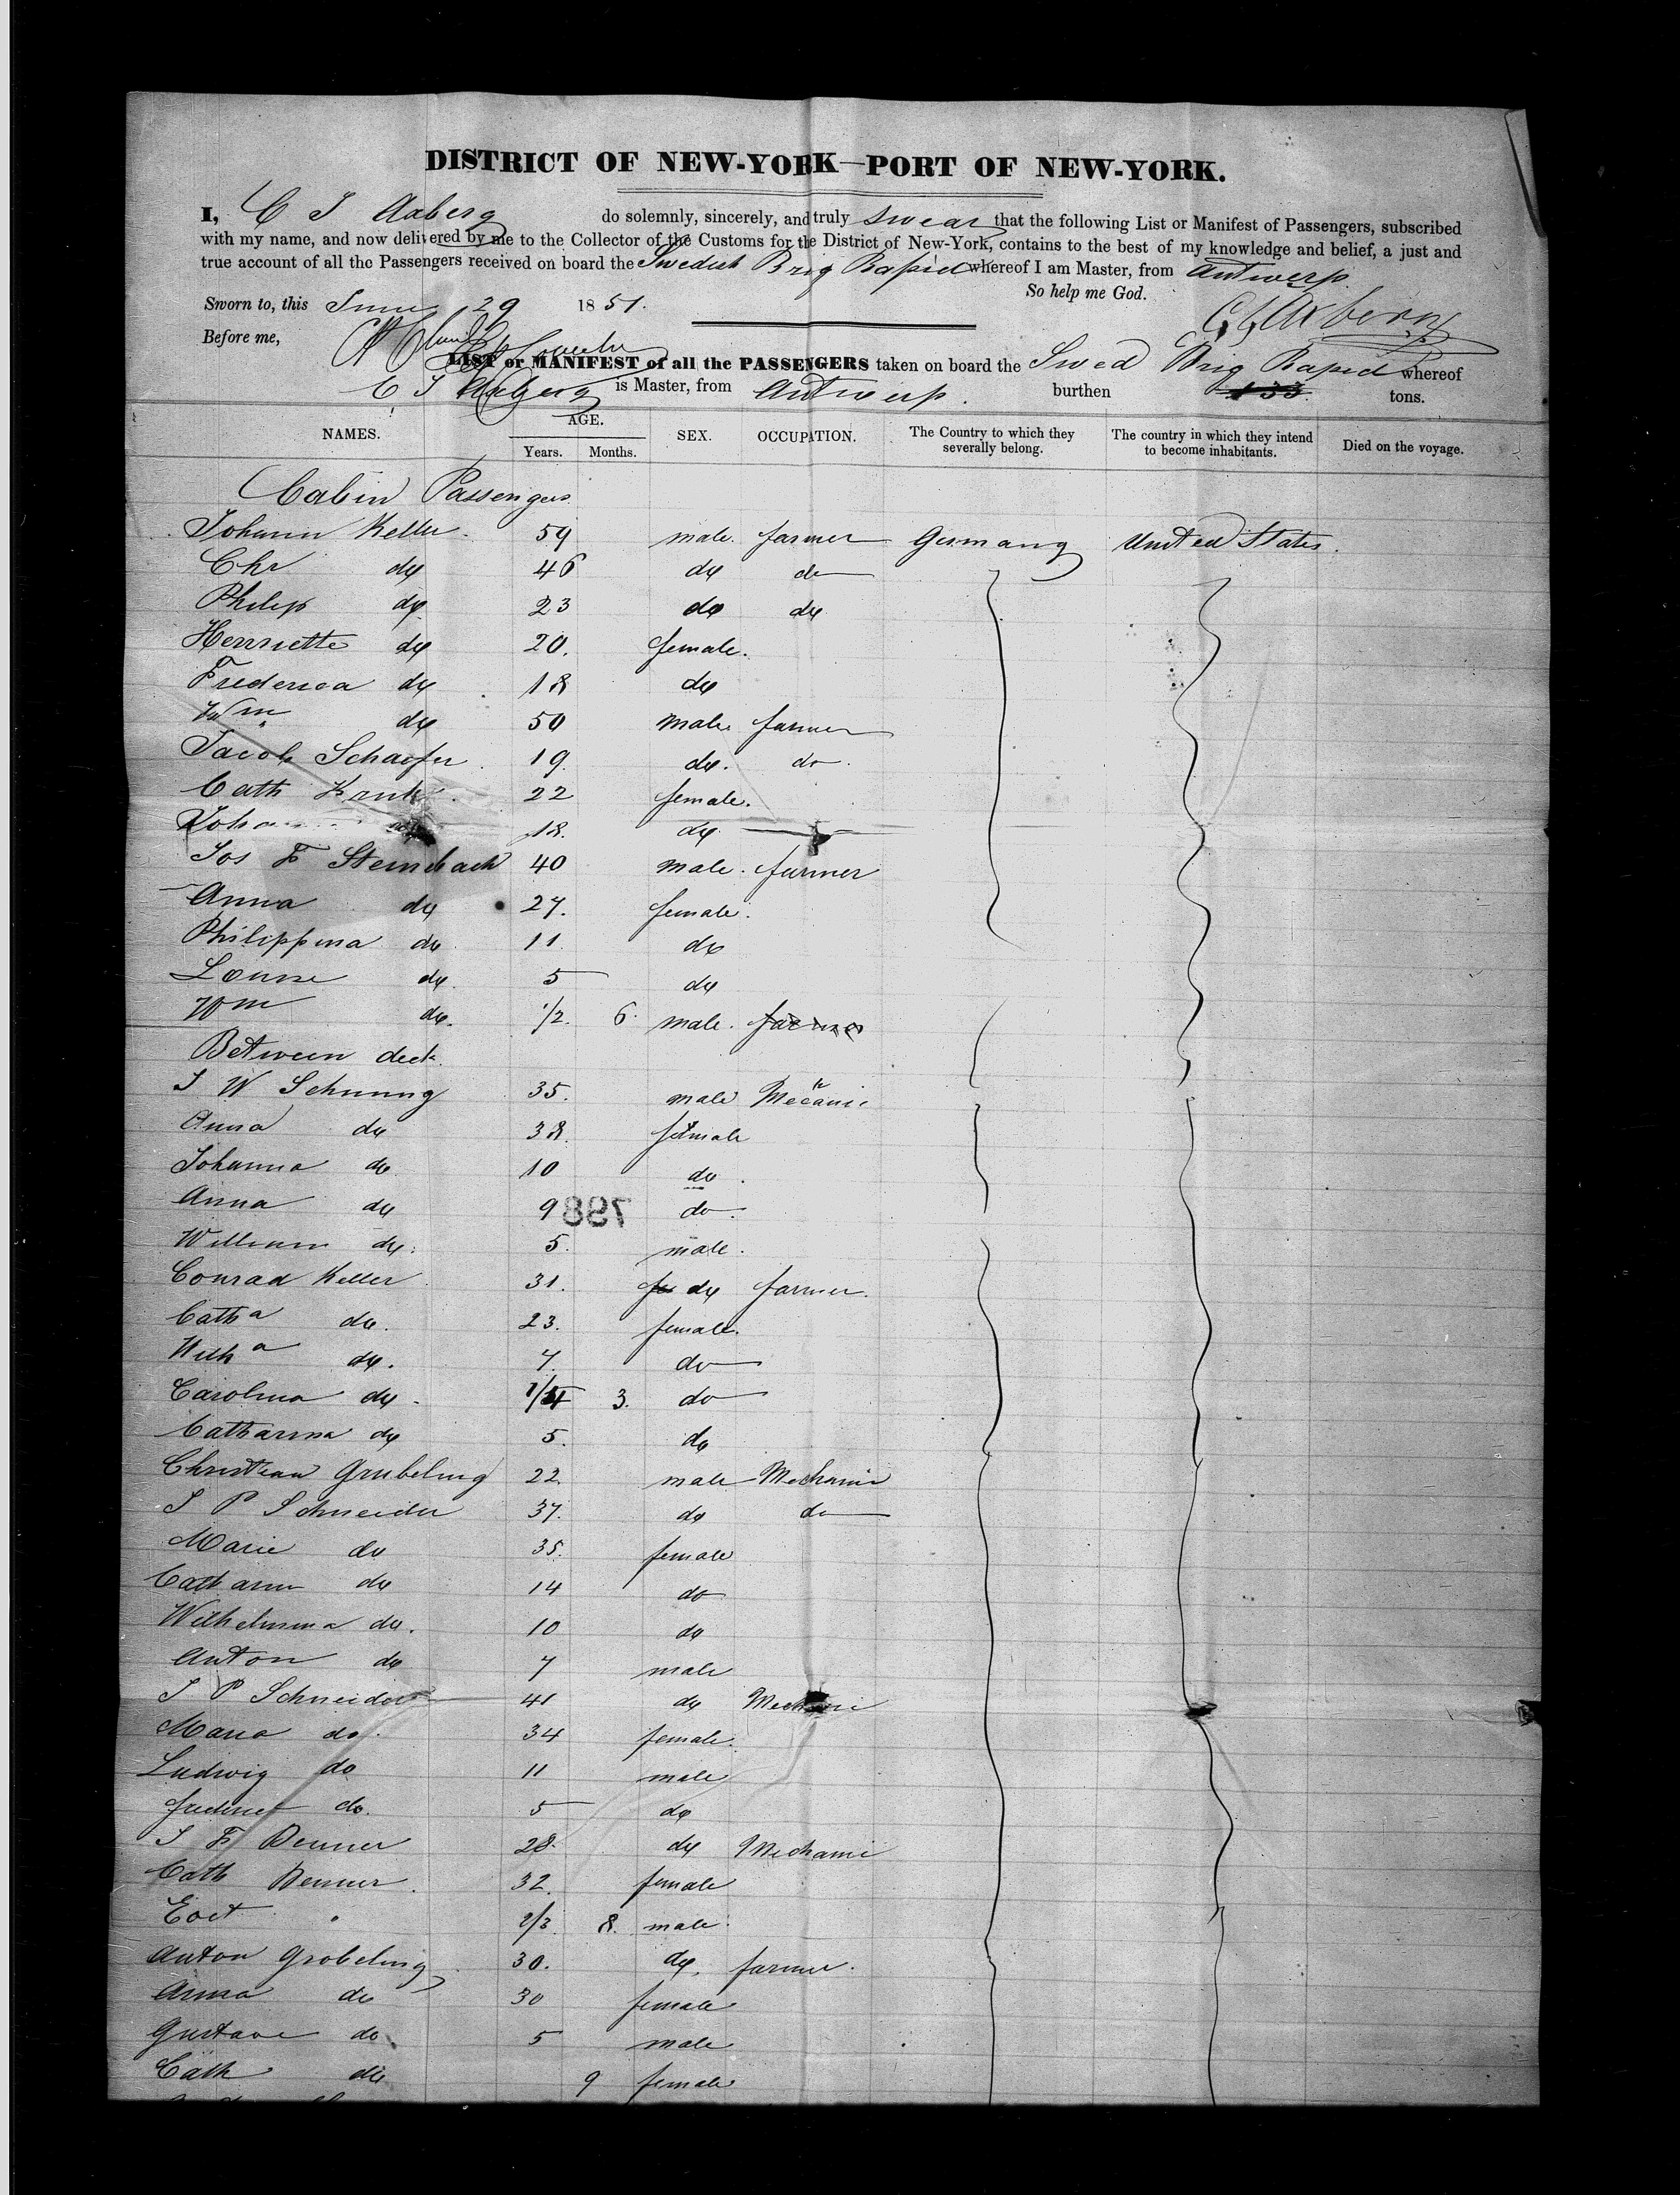 DISTRICT OF NEW-YORK—PORT OF NEW-YORK.
I, C J Axberg do solemnly, sincerely, and truly swear that the following List or Manifest of Passengers, subscribed
with my name, and now delivered by me to the Collector of the Customs for the District of New-York, contains to the best of my knowledge and belief, a just and
true account of all the Passengers received on board the Swedish Brig Rapid whereof I am Master, from Antwerp.
So help me God.
Sworn to, this June 29 1851.
C J Axberg
Before me,
LIST or MANIFEST of all the PASSENGERS taken on board the Swed Brig Rapid whereof
C J Axberg is Master, from Antwerp. burthen 133 tons.
NAMES. AGE. SEX. OCCUPATION. The Country to which they severally belong. The country in which they intend to become inhabitants. Died on the voyage.
Years. Months.
Cabin Passengers
Johann Keller. 59 male. farmer Germany United States.
Chr do 46 do do
Philip do 23 do do
Henriette do 20. female.
Frederica do 18 do
Wm do 50 male farmer
Jacob Schaefer. 19. do. do.
Cath 22 female.
18. do
Jos F Steinbach 40 male. farmer
Anna do 27. female.
Philippina do 11. do
Louise do. 5 do
Wm do. 1/2. 6. male. farmer
Between deck
J W Schnung 35. male Mecanic
Anna do 38. female
Johanna do 10 do.
Anna do 9 do.
798
William do. 5. male.
Conrad Keller 31. fe do farmer.
Catha do. 23. female.
Wilha do. 7. do
Carolina do. 1/4 3. do
Catharina do 5. do
Christian Grubeling 22. male Mechanic
J P Schneider 37. do do
Marie do 35. female
Catharin do 14 do
Wilhelmina do. 10 do
Anton do 7 male
J P Schneider 41 do Mechanic
Maria do. 34 female.
Ludwig do 11 male
do. 5 do
J F Denner 28. do Mechanic
Cath Denner. 32. female
2/3 8. male.
Anton Grobeling 30. do. farmer.
Anna do 30 female
Gustave do 5 male
Cath do 9 female